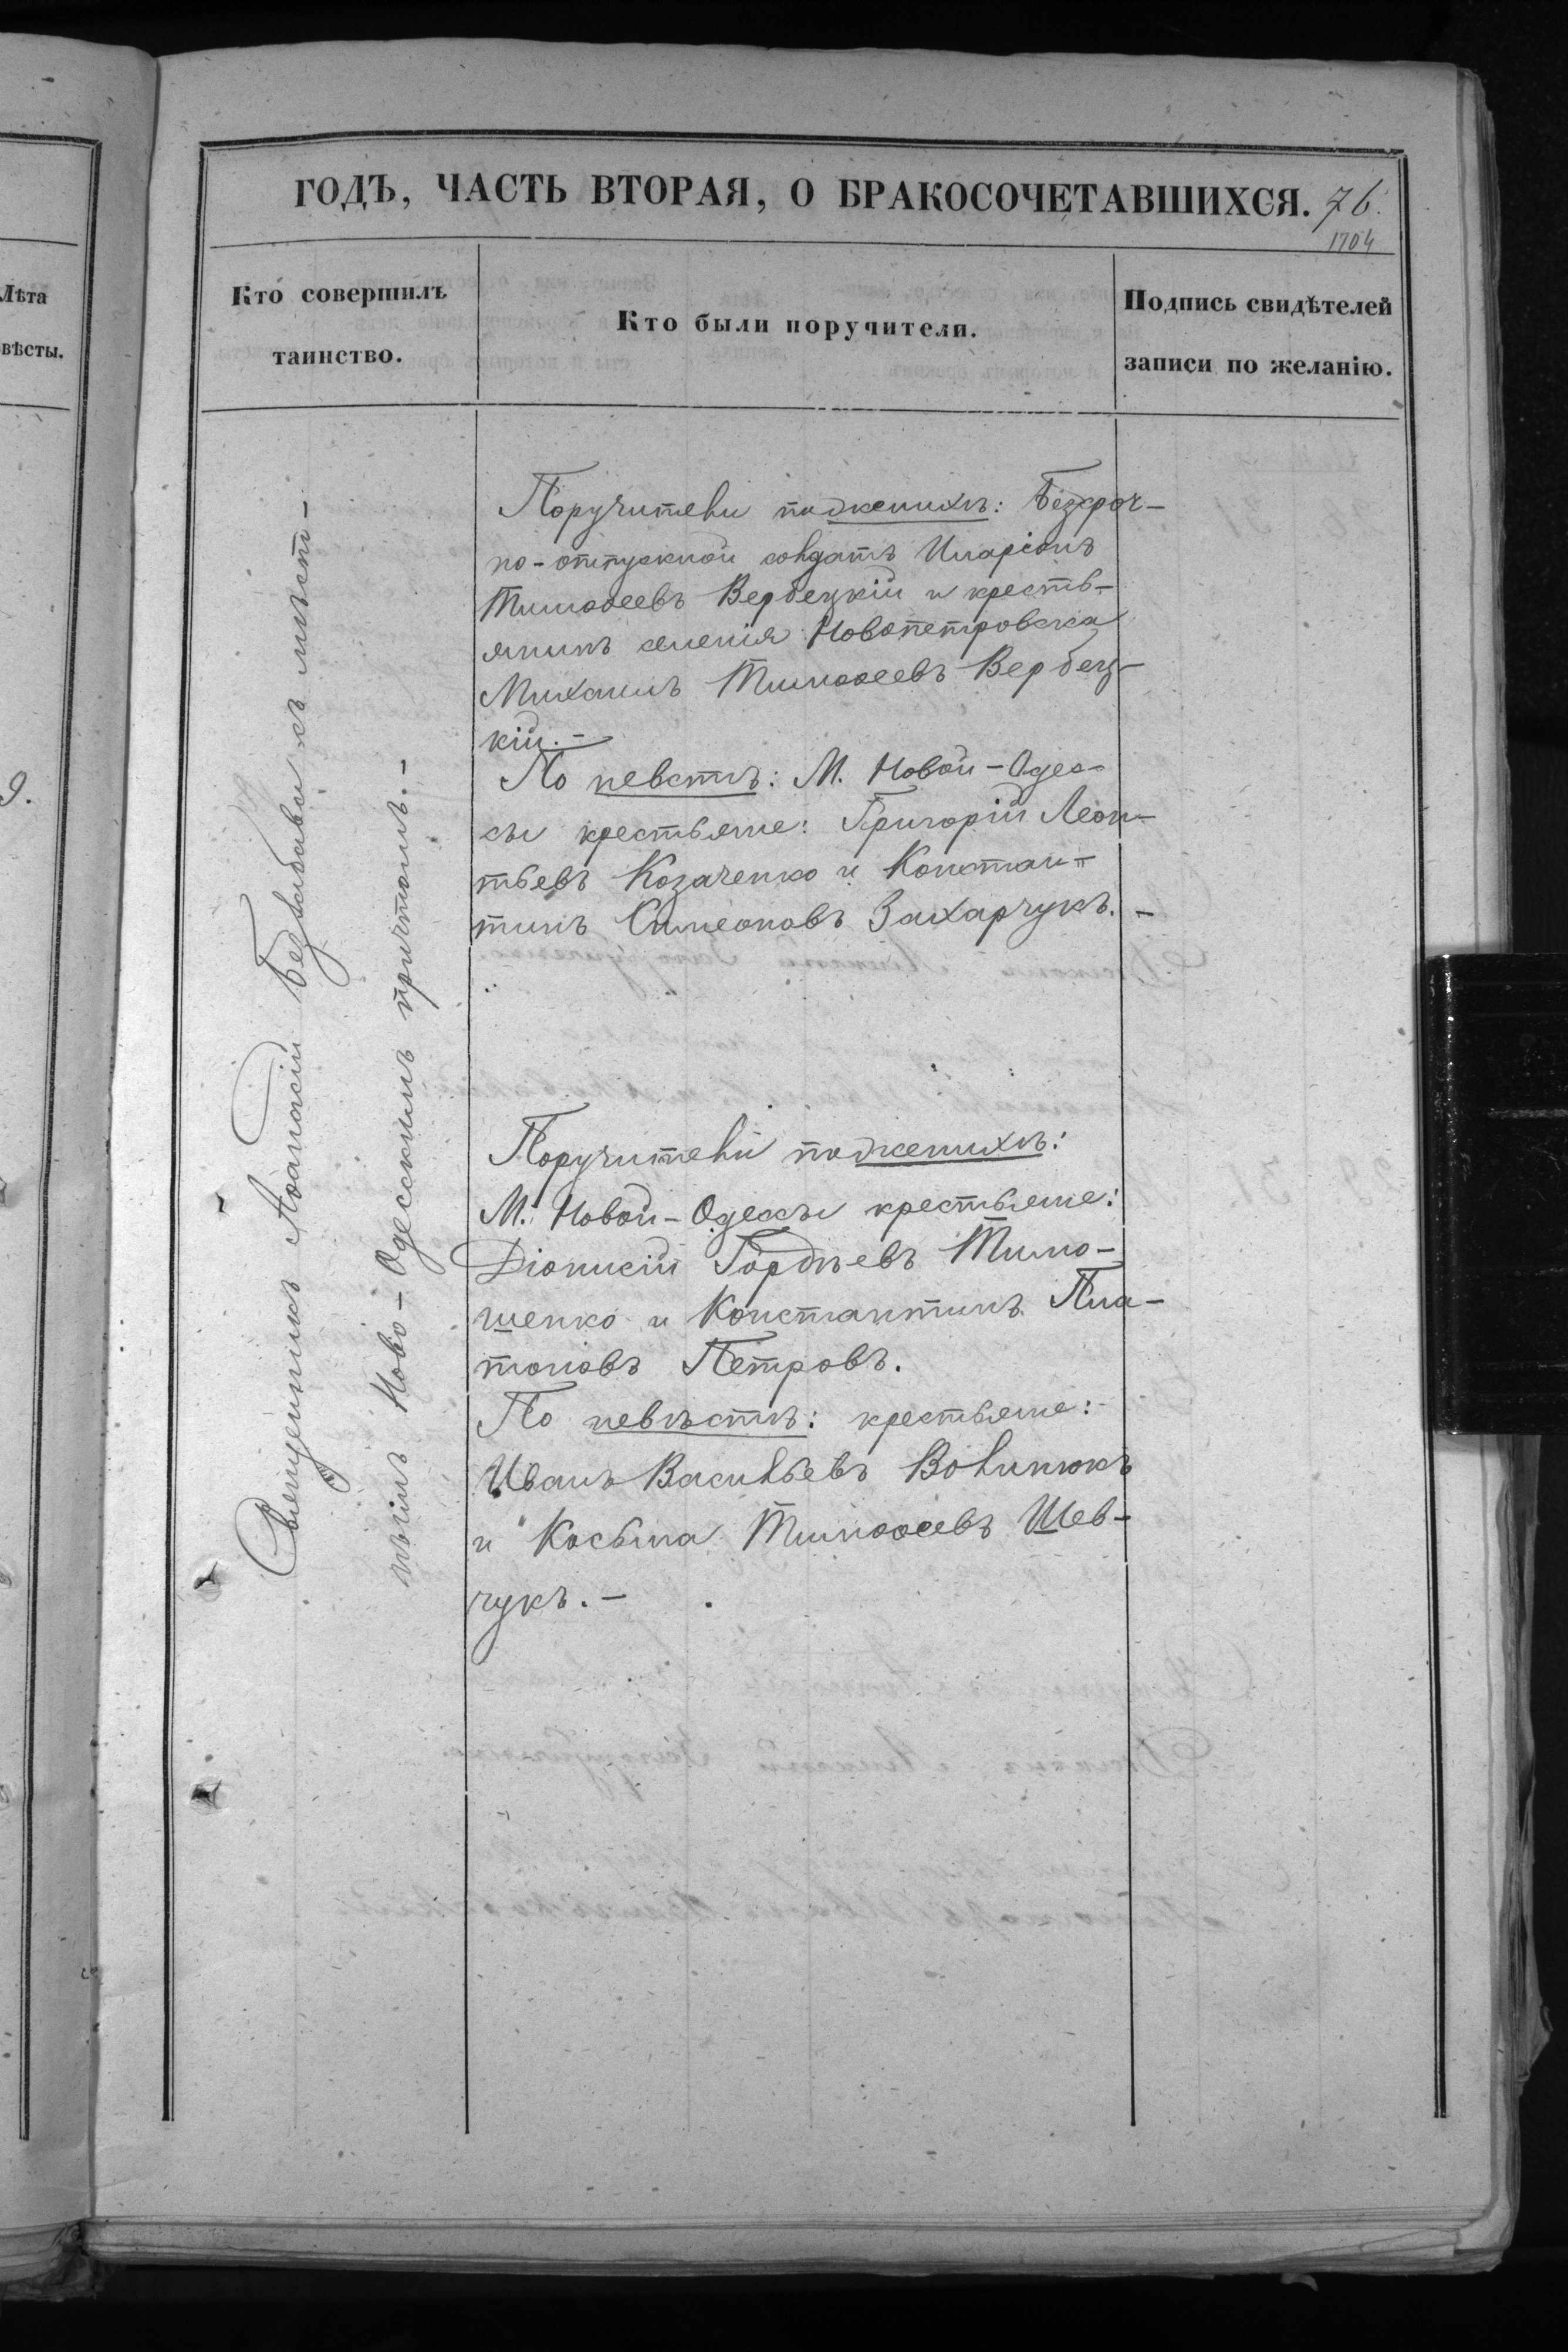 Лѣта
вѣсты.
9.
ГОДЪ, ЧАСТЬ ВТОРАЯ, О БРАКОСОЧЕТАВШИХСЯ. 76.
1704
Кто совершилъ
таинство.
Кто были поручители.
Подпись свидѣтелей
записи по желанію.
Священникъ Аѳанасій съ мѣст-
нымъ Ново-Одесскимъ причтомъ.-
Поручители по женихѣ: Безсроч-
но-отпускной солдатъ Иларіонъ
Тимоѳеевъ Вербецкій и кресть-
янинъ селенія Новопетровска
Михаилъ Тимоѳеевъ Вербец-
кій.-
По невстѣ: М. Новой-Одес-
сы крестьяне: Григорій Леон-
тьевъ Козаченко и Констан-
тинъ Симеоновъ Захарчукъ.-
Поручители по женихѣ:
М. Новой-Одессы крестьяне:
Діонисій Гордѣевъ Тимо-
шенко и Константинъ Пла-
тоновъ Петровъ.
По невѣстѣ: крестьяне:
Иванъ Васильевъ Волинюкъ
и Косьма Тимоѳеевъ Шев-
чукъ.-